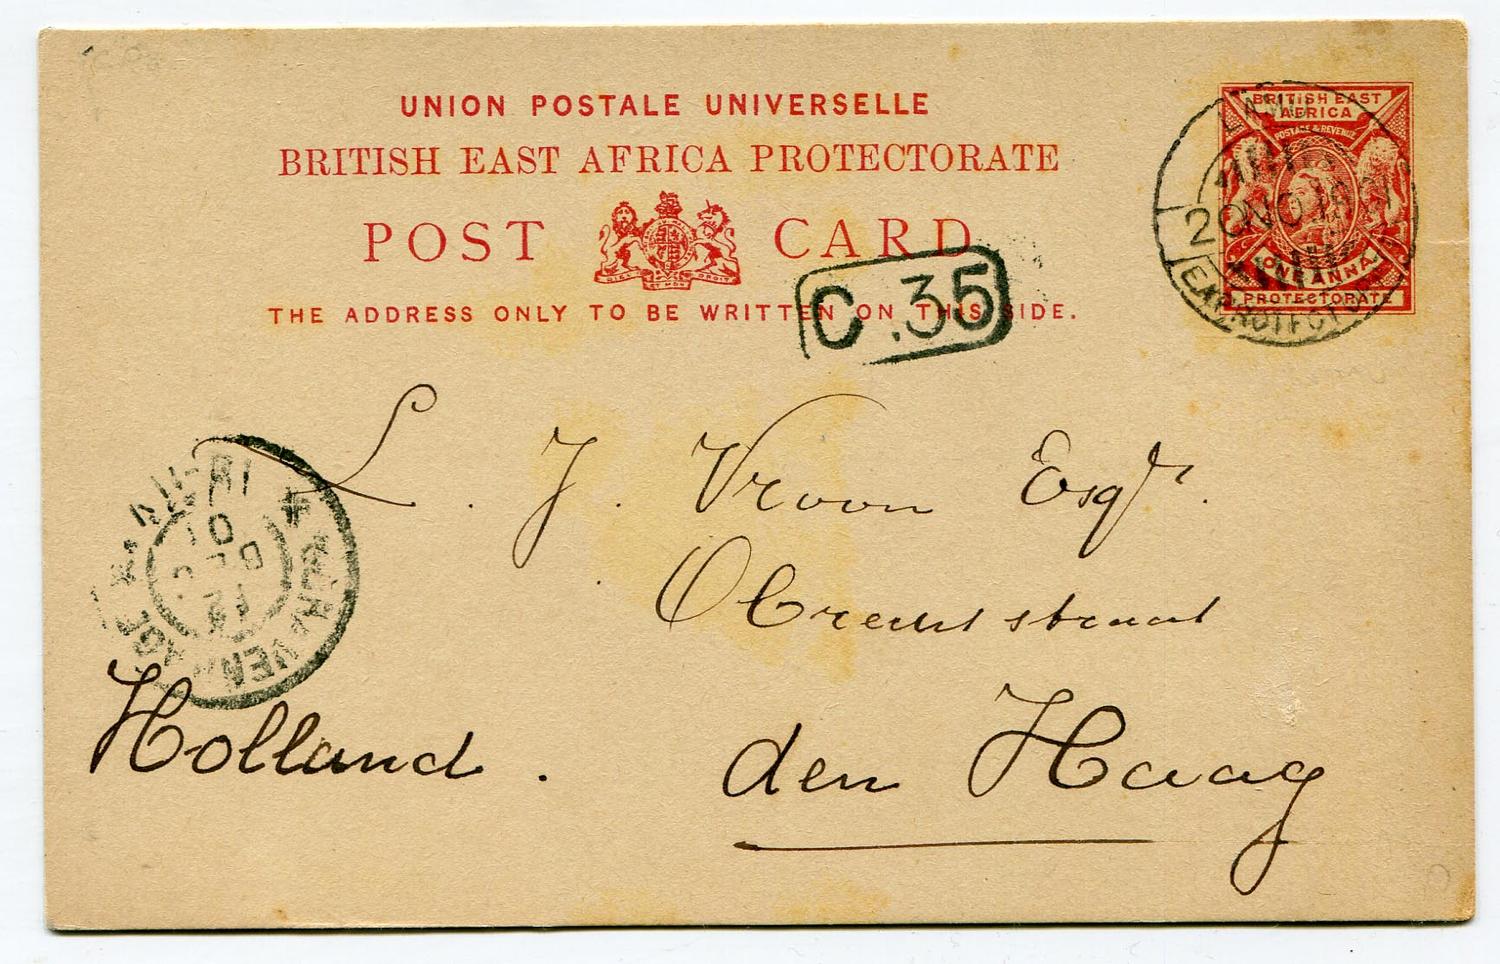 UNION POSTALE UNIVERSELLE
BRITISH EAST AFRICA PROTECTORATE
POST CARD
THE ADDRESS ONLY TO BE WRITTEN ON THIS SIDE.
BRITISH EAST
AFRICA
POSTAGE & REVENUE
ONE ANNA
PROTECTORATE
LAMU
2 NO
C.35
L. J. Vroon Esqr.
Obrecht straat
den Haag
Holland.
GRAVENHAGE
10
DEC